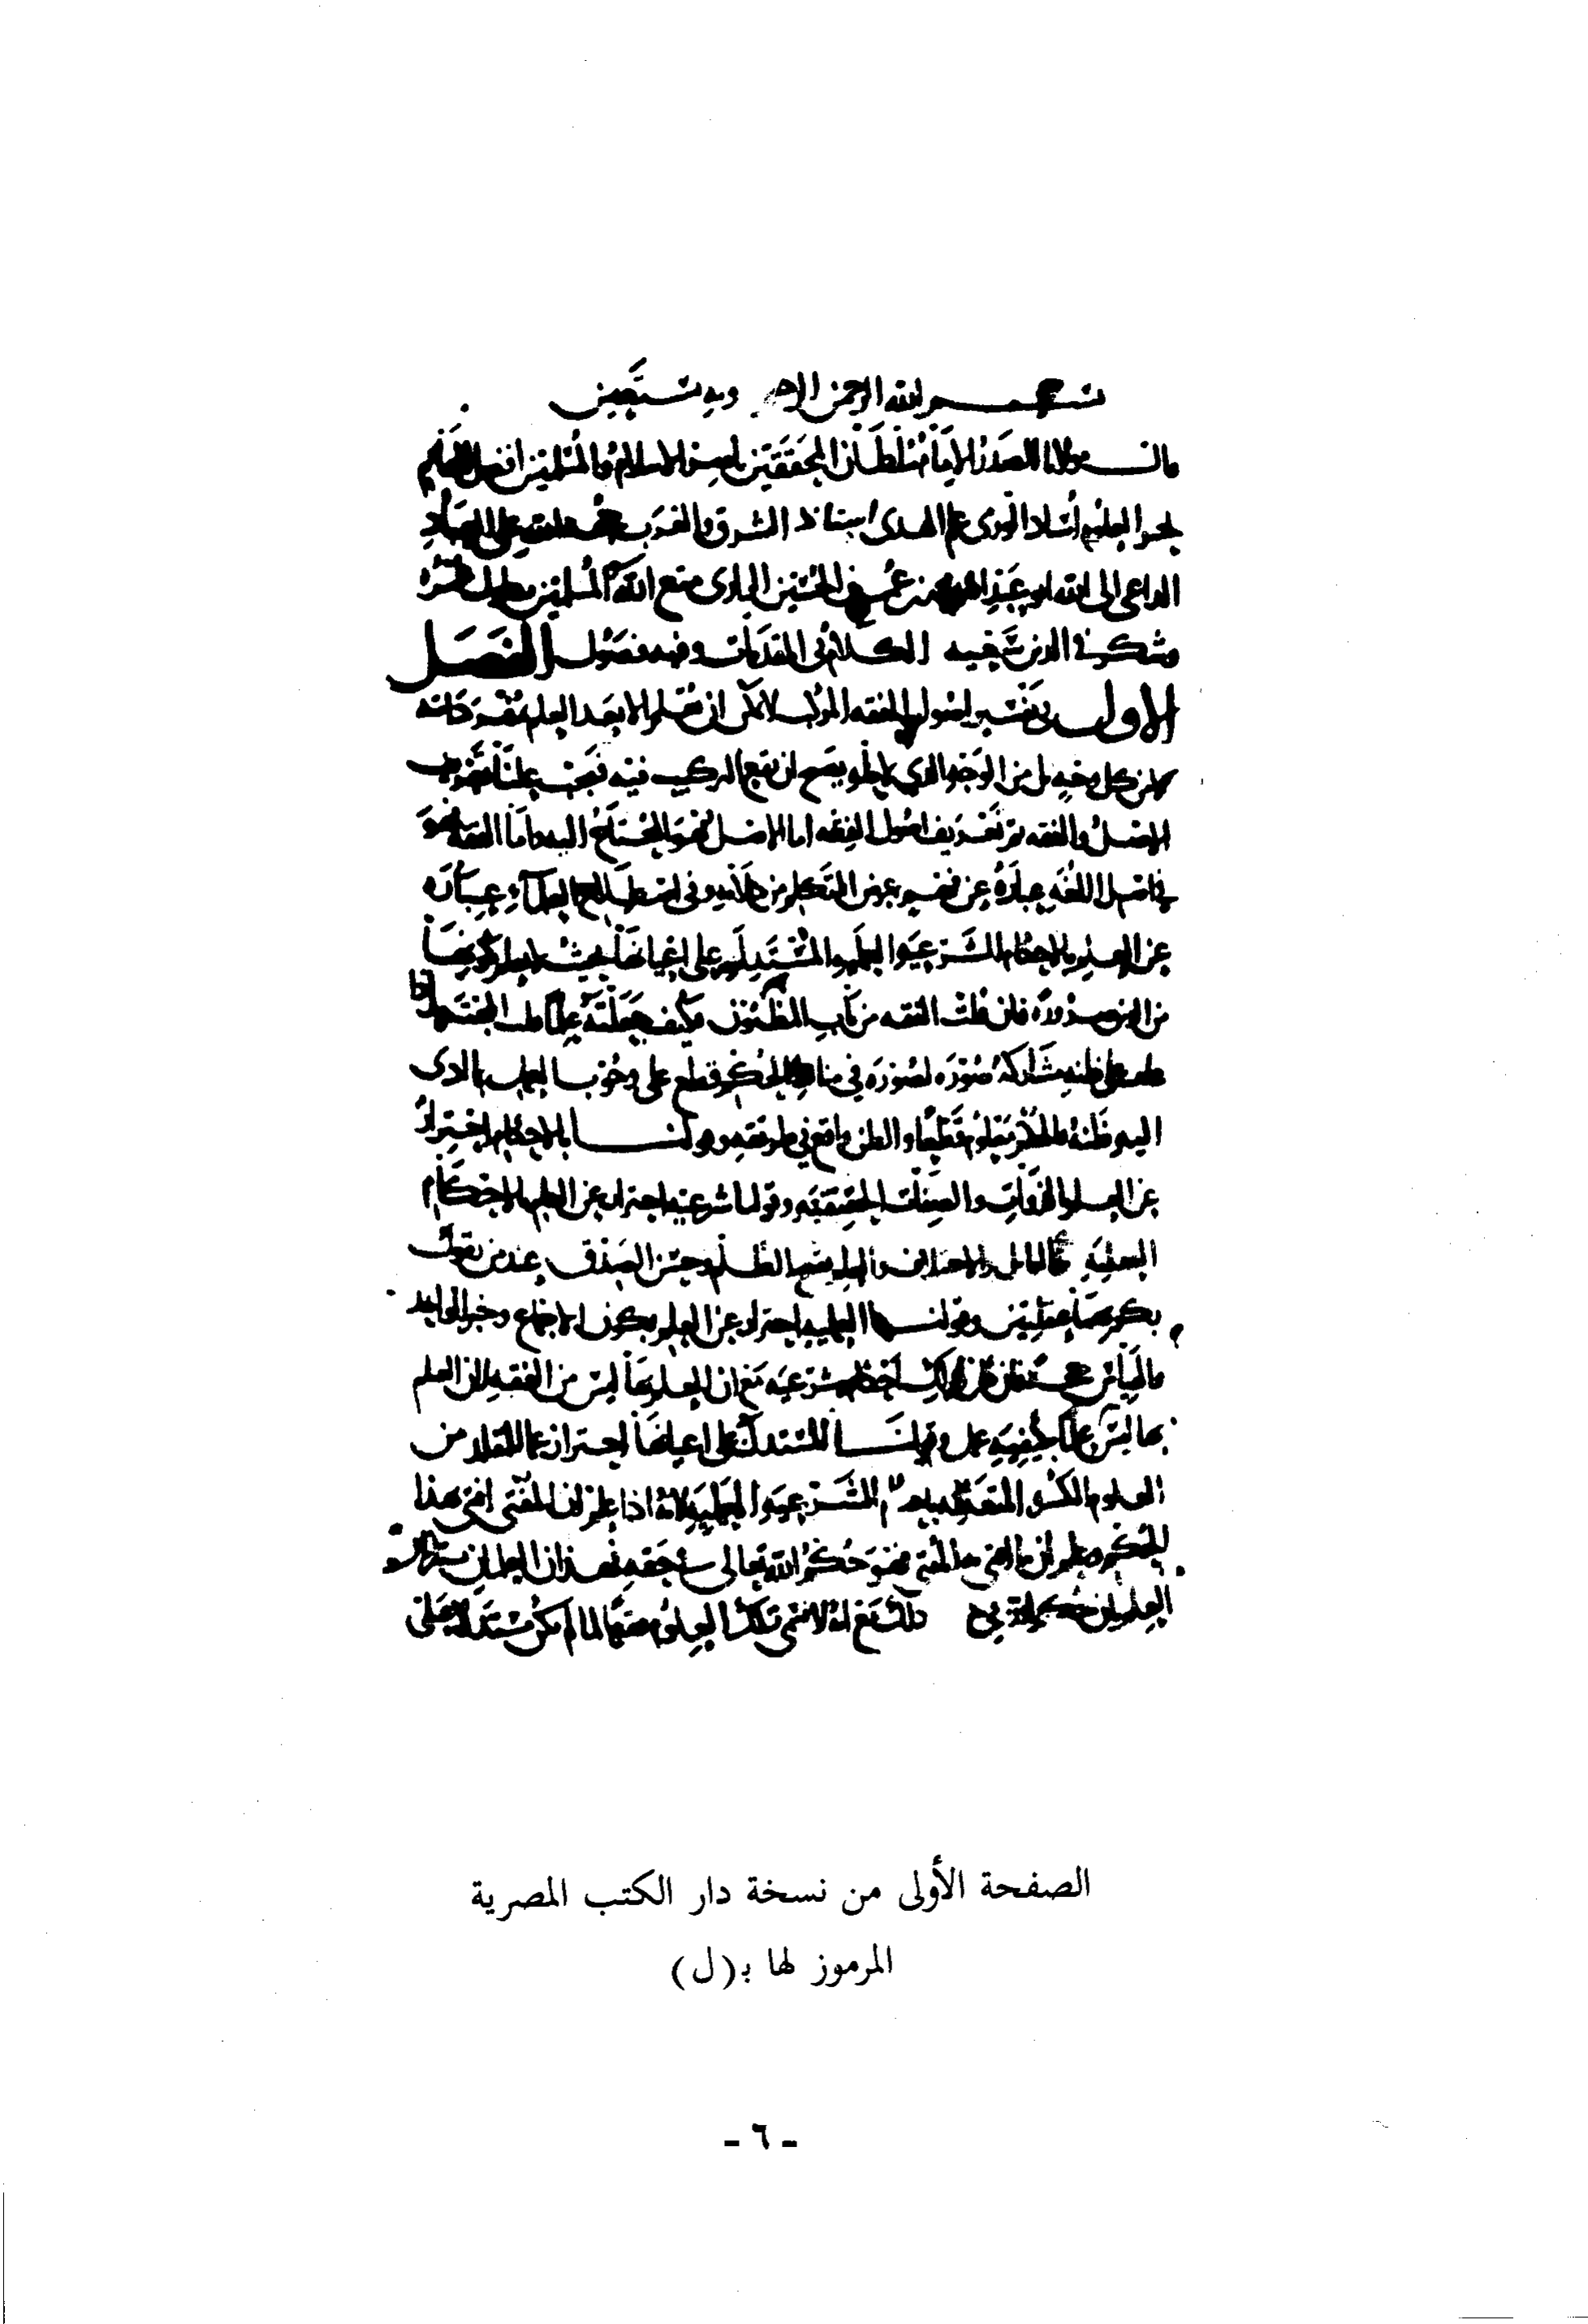 بسم الله الرحمن الرحيم وبه نستعين
قال مولانا الصدر الامام سلطان المحققين ناصر الاسلام والمسلمين افضل
الورى علم الهدى استاذ الشرق والغرب على العباد
الداعى الى الله ابو عبد الله محمد بن عمر بن الحسين الرازى متع الله المسلمين بطول
وشكر فى الدين سعيه الكلام فى المقدمات وفيه فصول الفصل
الاول فى تفسير اصول الفقه المركب لا يمكن ان يعلم الا بعد العلم بمفرداته
لا من كل وجه بل من الوجه الذي لاجله يصح ان يقع التركيب فيه فيجب علينا تعريف
الاصل والفقه ثم نعرف اصول الفقه اما الاصل فهو المحتاج اليه واما الفقه فهو
فى اصل اللغة عبارة عن فهم غرض المتكلم من كلامه وفى اصطلاح العلماء عبارة
عن العلم بالاحكام الشرعية العملية المستدل على اعيانها بحيث لا يعلم كونها
من الدين ضرورة فان قلت الفقه من باب الظنون فكيف جعلته علما قلت المجتهد اذا
غلب على ظنه مشاركة صورة لصورة فى مناط الحكم قطع على وجوب العمل بالذى
اليه ظنه فالحكم معلوم قطعا والظن واقع فى طريقه وقولنا بالاحكام احتراز
عن العلم بالذوات والصفات الحقيقية وقولنا شرعية احتراز عن العلم بالاحكام
العقلية كالتماثل والاختلاف والعلم بقبح الظلم وحسن الصدق عند من يقول
بكونهما عقليين وقولنا العملية احتراز عن العلم بكون الاجماع وخبر الواحد
والقياس حجة فان كل ذلك احكام شرعية مع ان العلم بها ليس من الفقه لان العلم
بها ليس علما بكيفية عمل وقولنا المستدل على اعيانها احتراز عما للمقلد من
العلوم الكثيرة المتعلقة بالاحكام الشرعية العملية لانه اذا علم ان المفتى افتى بهذا
الحكم وعلم ان ما افتى به المفتى فهو حكم الله تعالى فى حقه فهذان العلمان يستلزمان
العلم بان حكم الله فى ذلك مع انه لا تسمى تلك العلوم فقها لما لم يكن مستدلا على
الصفحة الأولى من نسخة دار الكتب المصرية
المرموز لها بـ (ل)
- ٦ -